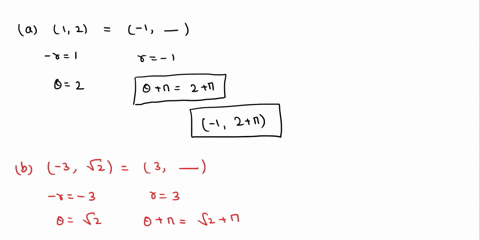 (a) (1, 2) = (-1, __)
-r = 1 r = -1
θ = 2 θ + π = 2 + π
(-1, 2 + π)
(b) (-3, √2) = (3, __)
-r = -3 r = 3
θ = √2 θ + π = √2 + π